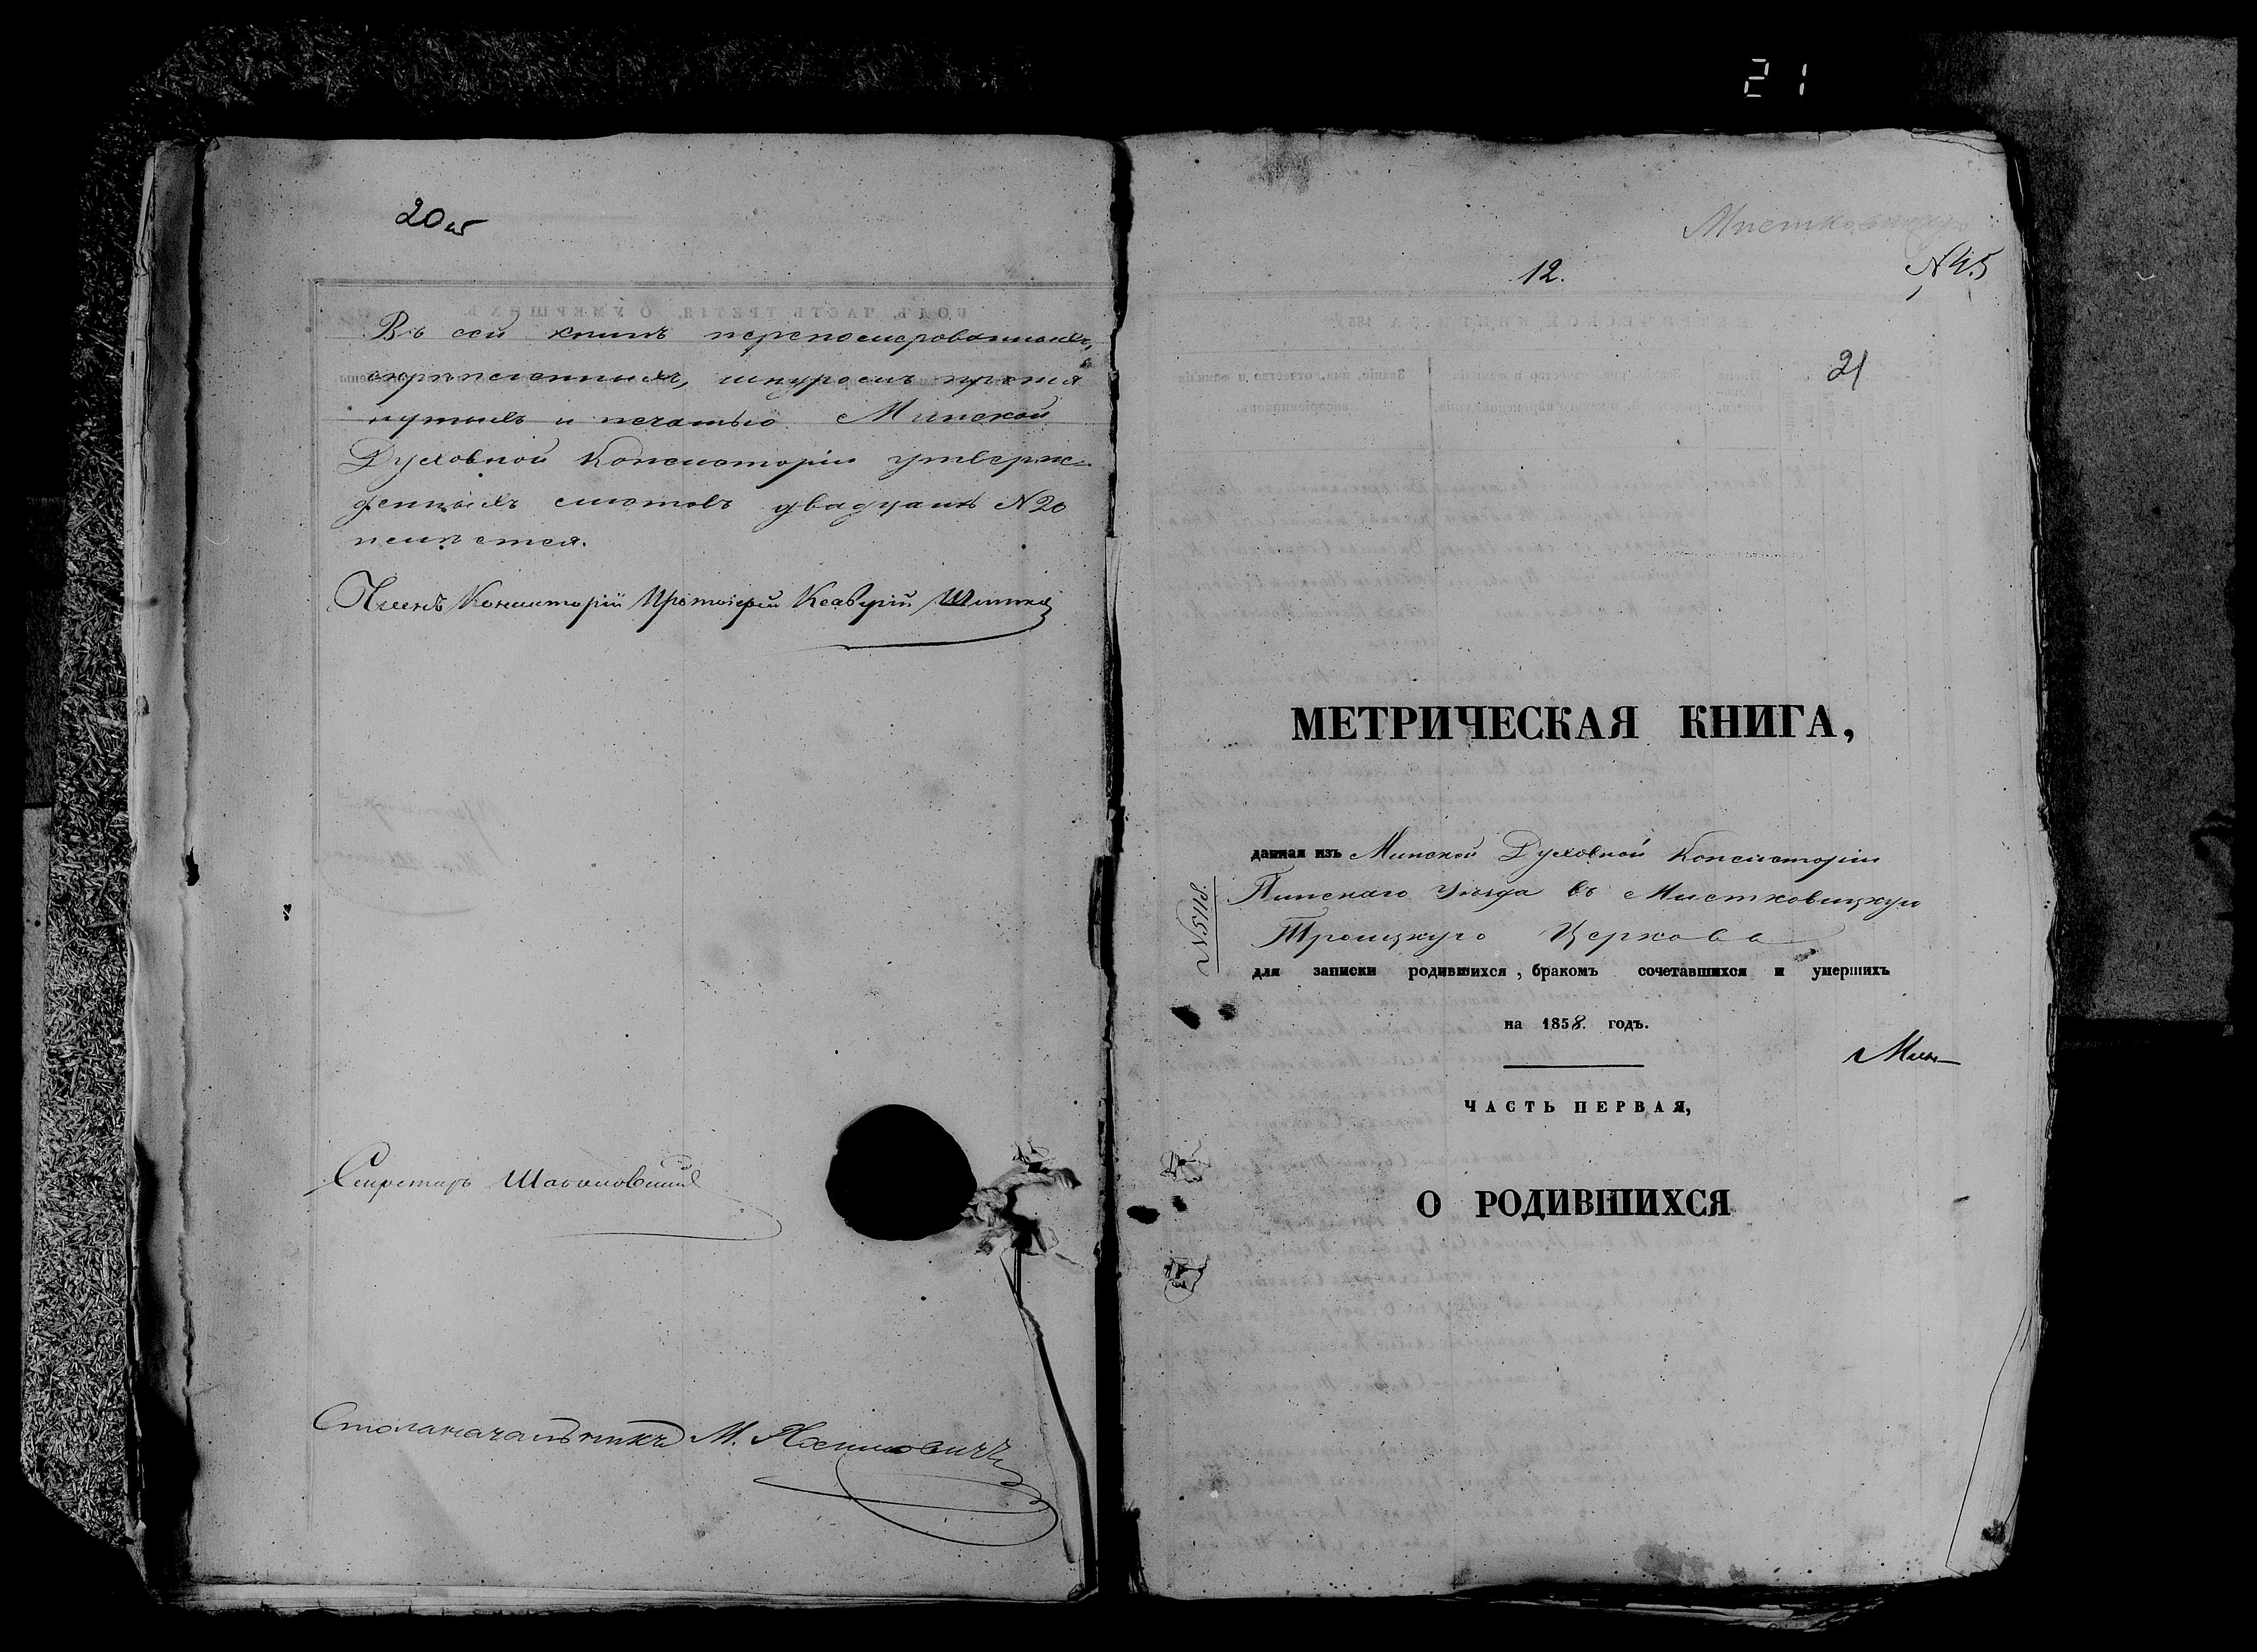 21
20 об
Въ сей книгѣ перепомерованныхъ,
скрѣпленныхъ, шнуромъ протя
нутыхъ и печатью Минской
Духовной Консисторіи утверж-
денныхъ листовъ двадцать N 20
числится.
Членъ Консисторіи Протоіерей Ксаверій
Секретарь
Столоначальникъ М.
12.
N 45
21
МЕТРИЧЕСКАЯ КНИГА,
данная изъ Минской Духовной Консисторіи
Пинскаго Уѣзда въ Мистковицкую
Троицкую Церковь
N 548.
для записки родившихся, бракомъ сочетавшихся и умершихъ
на 1858. годъ.
Мин-
ЧАСТЬ ПЕРВАЯ,
О РОДИВШИХСЯ